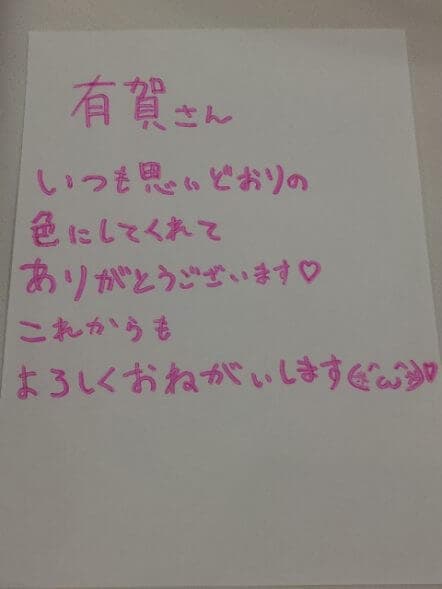 有賀さん
いつも思いどおりの
色にしてくれて
ありがとうございます♡
これからも
よろしくおねがいします(*^ω^*)♡